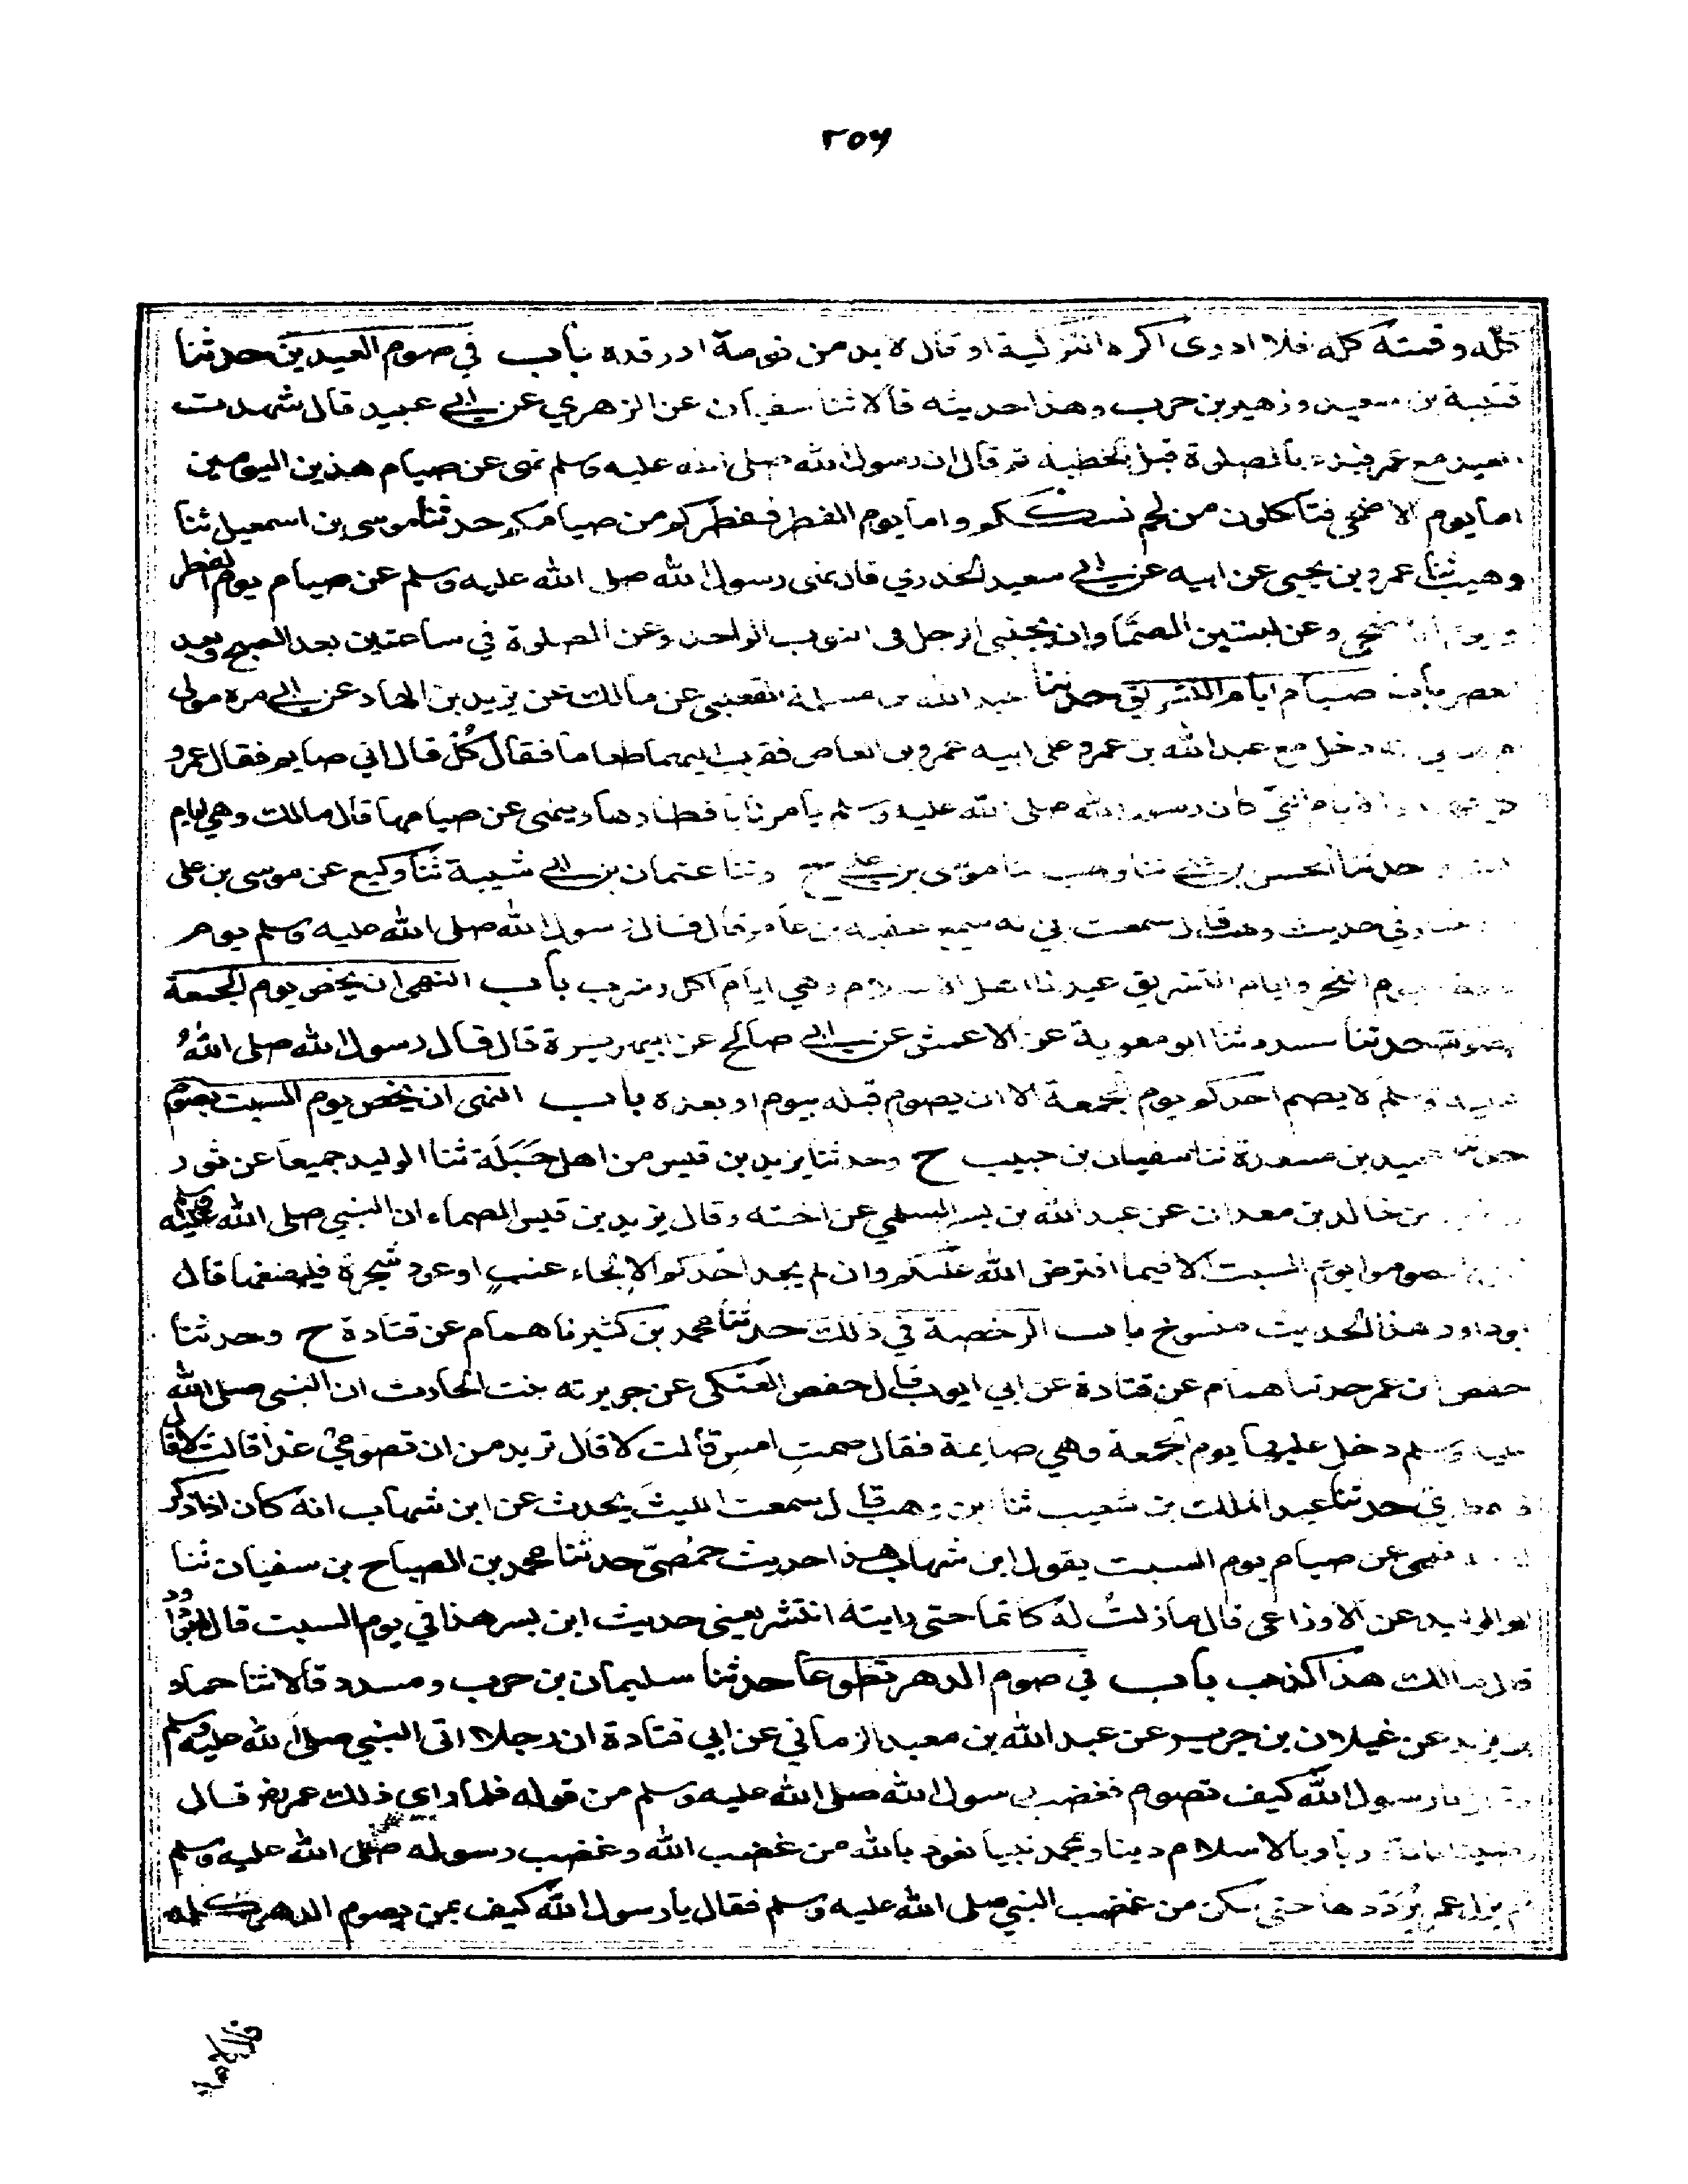 ٢٥٦
كله وقمته كله فلا ادرى اكره التزكية او قال لا بد من نومة او رقدة باب في صوم العيدين حدثنا
قتيبة بن سعيد وزهير بن حرب وهذا حديثه قالا ثنا سفيان عن الزهري عن ابي عبيد قال شهدت
العيد مع عمر فبدء بالصلوة قبل الخطبة ثم قال ان رسول الله صلى الله عليه وسلم نهى عن صيام هذين اليومين
اما يوم الاضحى فتاكلون من لحم نسككم واما يوم الفطر ففطركم من صيامكم حدثنا موسى بن اسمعيل ثنا
وهيب ثنا عمرو بن يحيى عن ابيه عن ابي سعيد الخدري قال نهى رسول الله صلى الله عليه وسلم عن صيام يوم الفطر
ويوم الاضحى وعن لبستين الصما وان يحتبى الرجل فى الثوب الواحد وعن الصلوة في ساعتين بعد الصبح وبعد
العصر باب صيام ايام التشريق حدثنا عبد الله بن مسلمة القعنبي عن مالك عن يزيد بن الهاد عن ابي مرة مولى
دخل مع عبد الله بن عمرو على ابيه عمرو بن العاص فقرب اليهما طعاما فقال كل قال اني صايم فقال عمرو
الايام التي كان رسول الله صلى الله عليه وسلم يامرنا بافطارها وينهى عن صيامها قال مالك وهي ايام
حدثنا الحسن بن علي ثنا وهب ثنا موسى بن علي ح وثنا عثمان بن ابي شيبة ثنا وكيع عن موسى بن على
في حديث وهب قال سمعت ابي انه سمع عقبة بن عامر قال قال رسول الله صلى الله عليه وسلم يوم
يوم النحر وايام التشريق عيدنا اهل الاسلام وهي ايام اكل وشرب باب النهى ان يخص يوم الجمعة
بصوم حدثنا مسدد ثنا ابو معوية عن الاعمش عن ابي صالح عن ابي هريرة قال قال رسول الله صلى الله
عليه وسلم لا يصم احدكم يوم الجمعة الا ان يصوم قبله بيوم او بعده باب النهى ان يخص يوم السبت بصوم
حدثنا حميد بن مسعدة ثنا سفيان بن حبيب ح وحدثنا يزيد بن قيس من اهل جبلة ثنا الوليد جميعا عن ثور
بن خالد بن معدان عن عبد الله بن بسر السلمي عن اخته وقال يزيد بن قيس الصماء ان النبي صلى الله عليه وسلم
تصوموا يوم السبت الا فيما افترض الله عليكم وان لم يجد احدكم الا لحاء عنب او عود شجرة فليمضغها قال
ابو داود هذا الحديث منسوخ باب الرخصة في ذلك حدثنا محمد بن كثير نا همام عن قتادة ح وحدثنا
حفص بن عمر حدثنا همام عن قتادة عن ابي ايوب قال حفص العتكى عن جويرية بنت الحارث ان النبى صلى الله
عليه وسلم دخل عليها يوم الجمعة وهي صايمة فقال صمت امس قالت لا قال تريدين ان تصومي غدا قالت لا قال
فافطري حدثنا عبد الملك بن شعيب ثنا ابن وهب قال سمعت الليث يحدث عن ابن شهاب انه كان اذا ذكر
نهى عن صيام يوم السبت يقول ابن شهاب هذا حديث حمصي حدثنا محمد بن الصباح بن سفيان ثنا
ابو الوليد عن الاوزاعى قال ما زلت له كاتما حتى رايته انتشر يعني حديث ابن بسر هذا في يوم السبت قال ابو داود
قال مالك هذا كذب باب في صوم الدهر تطوعا حدثنا سليمان بن حرب ومسدد قالا ثنا حماد
بن يزيد عن غيلان بن جرير عن عبد الله بن معبد الزماني عن ابي قتادة ان رجلا اتى النبي صلى الله عليه وسلم
فقال يا رسول الله كيف تصوم فغضب رسول الله صلى الله عليه وسلم من قوله فلما راي ذلك عمر رض قال
رضينا بالله ربا وبالاسلام دينا وبمحمد نبيا نعوذ بالله من غضب الله وغضب رسوله صلى الله عليه وسلم
فلم يزل عمر يرددها حتى سكن من غضب النبي صلى الله عليه وسلم فقال يا رسول الله كيف بمن يصوم الدهر كله